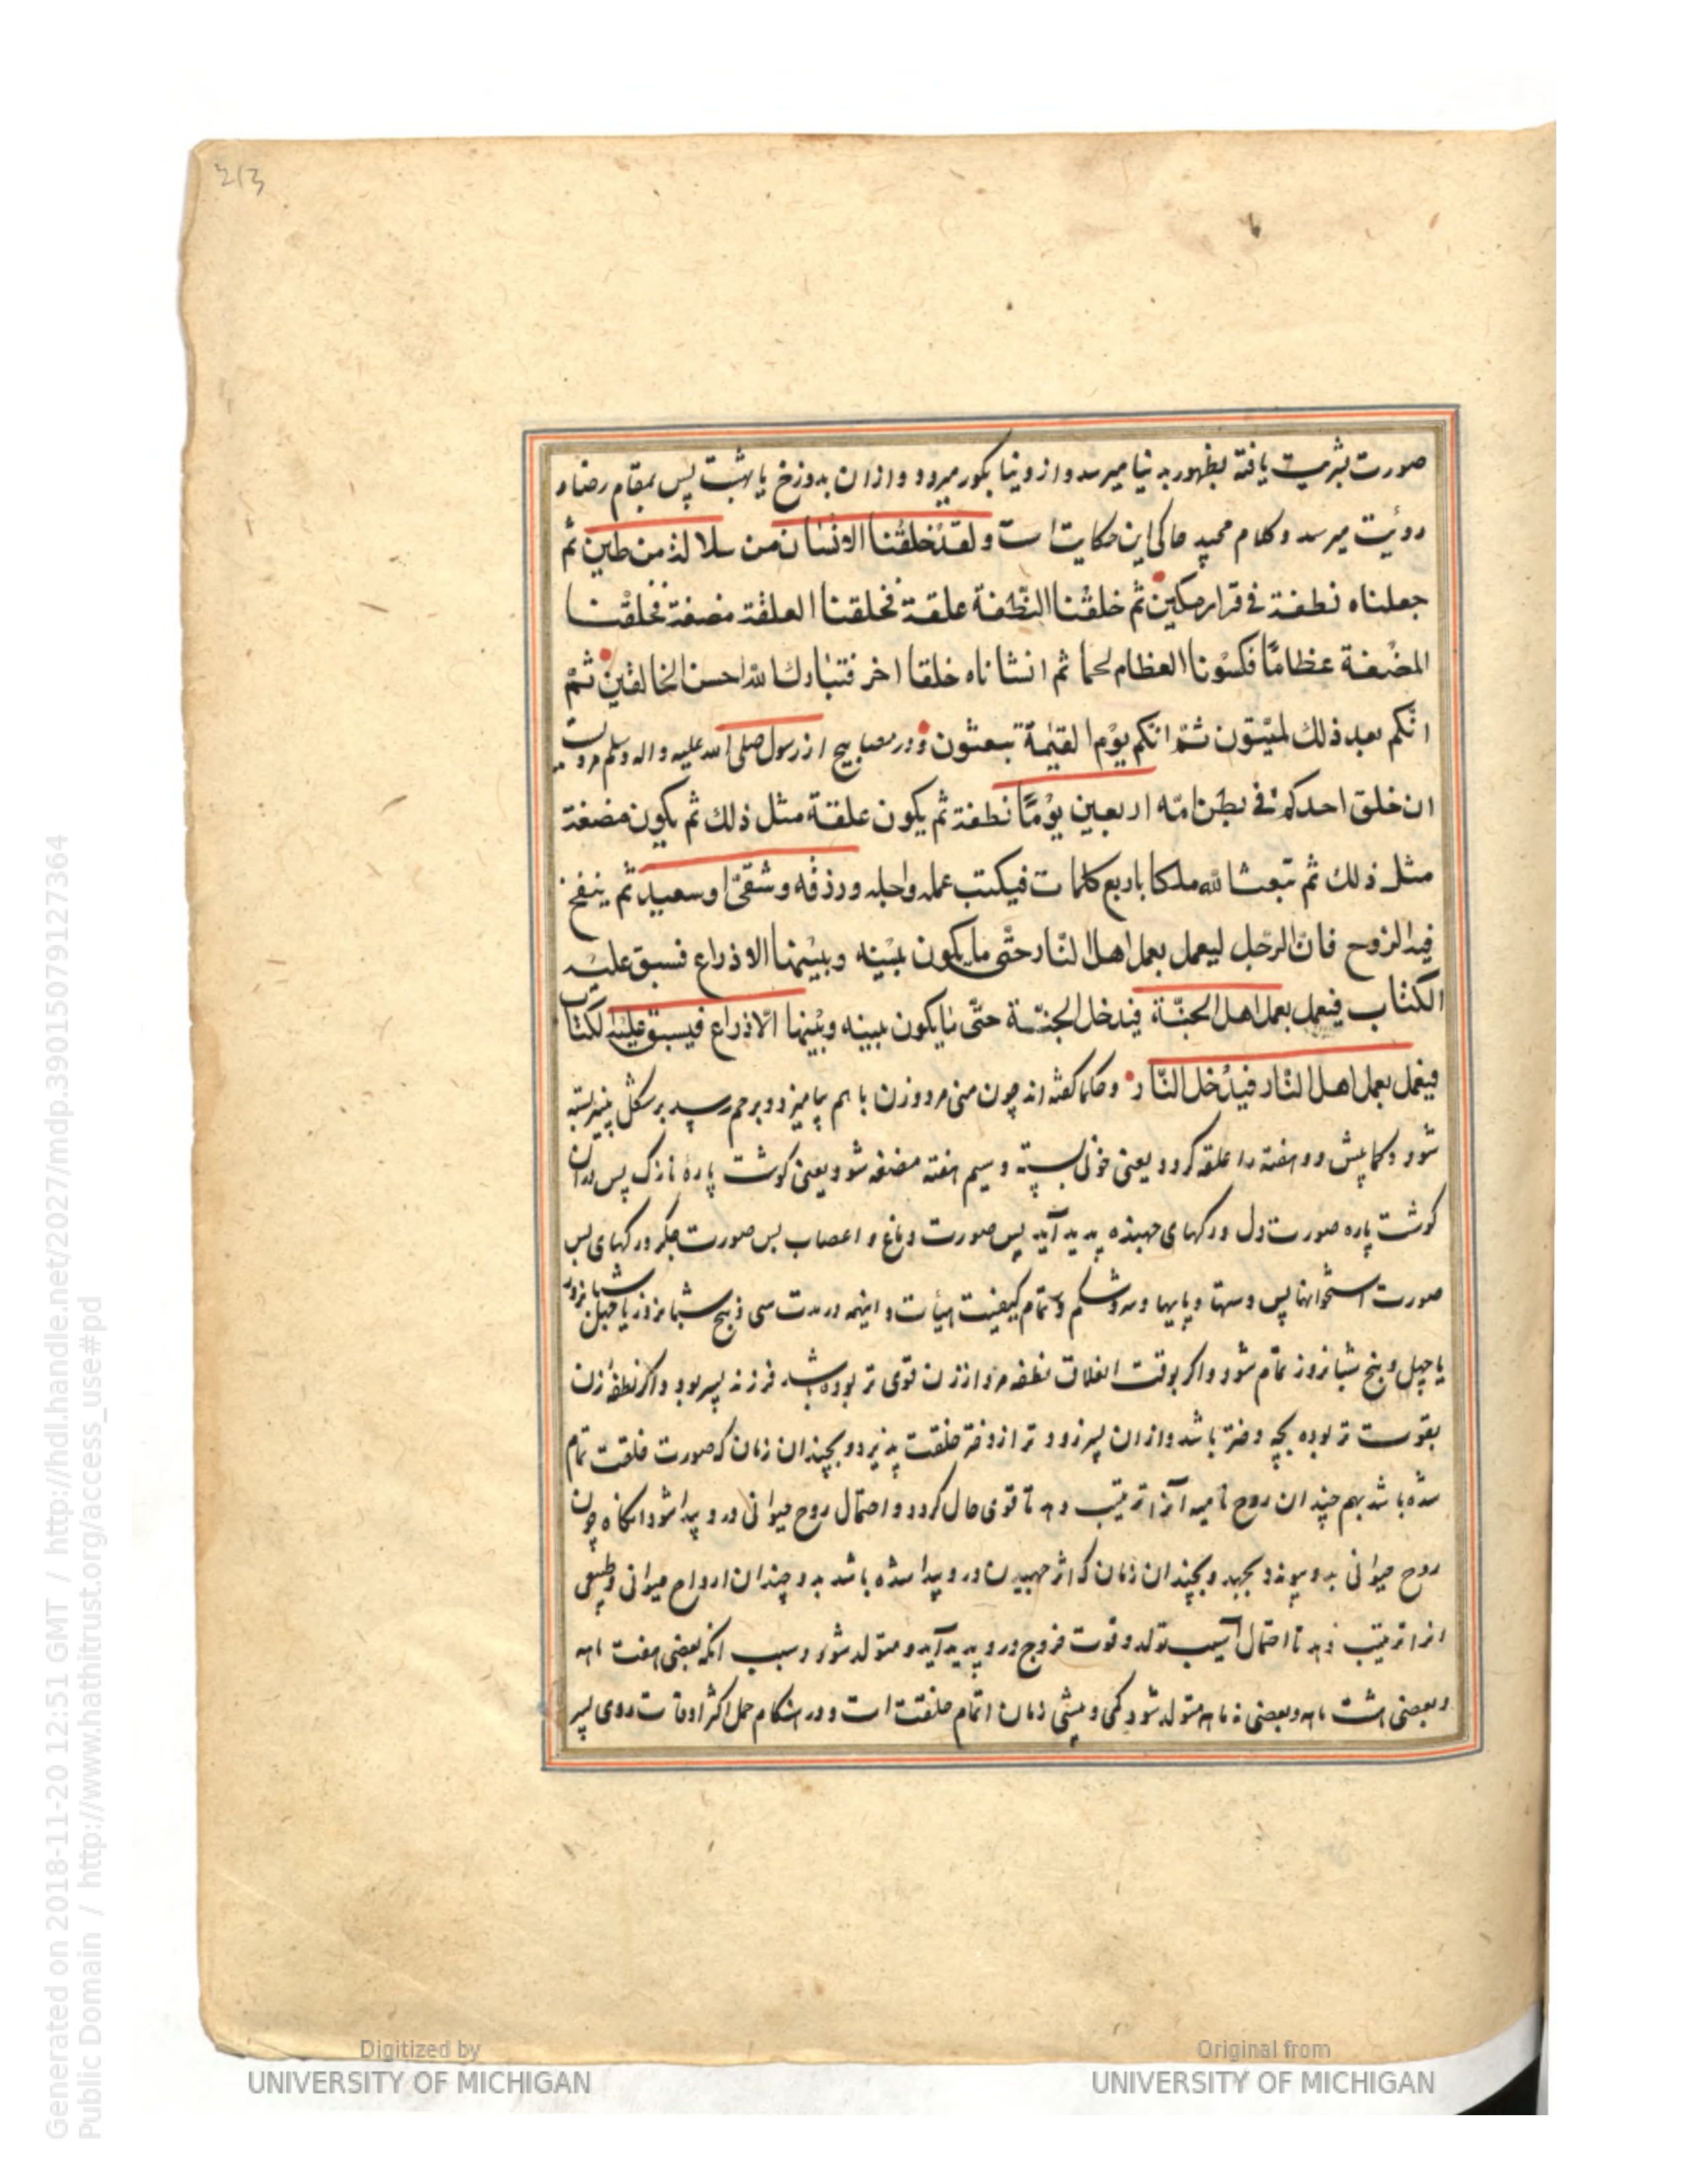 213
صورت بشریت یافته بظهور بدنیا میرسد و از دنیا بکور میرود و ازان بدوزخ یا بهشت پس بمقام رضا و
رویٔت میرسد و کلام مجید حاکی این حکایت است ولقد خلقنا الانسان من سلالة من طین ثم
جعلناه نطفة فی قرار مکین ثم خلقنا النطفة علقة فخلقنا العلقة مضغة فخلقنا
المضغة عظامًا فکسونا العظام لحما ثم انشاناه خلقا اخر فتبارك الله احسن الخالقین ثمّ
انّکم بعد ذلك لمیّتون ثمّ انّکم یوم القیٰمة تبعثون و در مصابیح از رسول صلی الله علیه و اله وسلم مرویست
ان خلق احدکم فی بطن امّه اربعین یومًا نطفة ثم یکون علقة مثل ذلك ثم یکون مضغة
مثل ذلك ثم تبعث الله ملکا باربع کلمات فیکتب عمله واجله ورزقه وشقیّ او سعید ثم ینفخ
فیه الروح فانّ الرجل لیعمل بعمل اهل النّار حتّی ما یکون بینه وبینها الا ذراع فسبق علیه
الکتاب فیعمل بعمل اهل الجنّة فیدخل الجنّة حتّی ما یکون بینه وبینها الّا ذراع فیسبق علیه الکتاب
فیعمل بعمل اهل النّار فیدخل النّار و حکما کفته اند چون منی مرد و زن با هم بیامیزد و برحم رسد بر شکل پنیر بسته
شود و کمابیش دو هفته را علقه کردد یعنی خونی بسته و سیم هفته مضغه شود یعنی کوشت پارهٔ نازک پس دران
کوشت پاره صورت دل و رکهای جهنده پدید آید پس صورت دماغ و اعصاب پس صورت جکر و رکهای پس
صورت استخوانها پس دستها و پایها و سر و شکم و تمام کیفیت هیأت و اینهمه در مدت سی و پنج شبانروز یا چهل شبانروز
یا چهل و پنج شبانروز تمام شود و اکر بوقت نطفه مرد از زن قوی تر بوده باشد فرزند پسر بود و اکر نطفهٔ زن
بقوت تر بوده بچه دختر باشد و ازان پسر زودتر از دختر خلقت پذیرد و بچندان زمان که صورت خلقت تمام
شده باشد بهم چندان روح نامیه آنرا تربیت دهد تا قوی حال کردد و احتمال روح حیوانی در و پیدا شود انکاه چون
روح حیوانی بدو پیوندد بجنبد و بچندان زمان که اثر جنبیدن در و پیدا شده باشد بدو چندان ارواح حیوانی و طبیعی
انرا تربیت دهد تا احتمال آسیب تولد و قوت خروج در و پدید آید و متولد شود و سبب انکه بعضی هفت ماهه
و بعضی هشت ماهه و بعضی نه ماهه متولد شود کمی و بیشی زمان اتمام خلقت است و در هنکام حمل اکثر اوقات روی پسر
Generated on 2018-11-20 12:51 GMT / http://hdl.handle.net/2027/mdp.39015079127364
Public Domain / http://www.hathitrust.org/access_use#pd
Digitized by
UNIVERSITY OF MICHIGAN
Original from
UNIVERSITY OF MICHIGAN